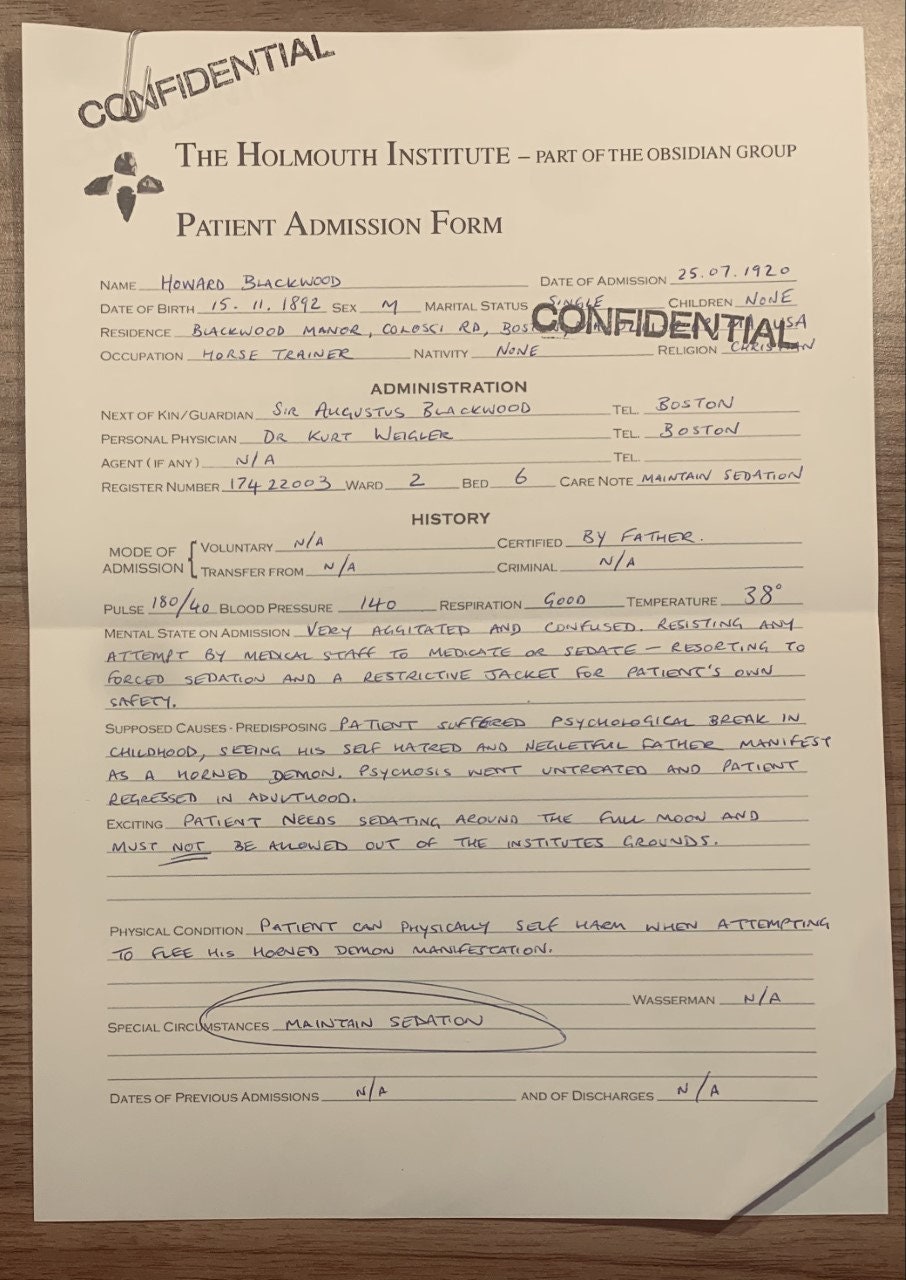 CONFIDENTIAL
THE HOLMOUTH INSTITUTE – PART OF THE OBSIDIAN GROUP
PATIENT ADMISSION FORM
NAME HOWARD BLACKWOOD DATE OF ADMISSION 25.07.1920
DATE OF BIRTH 15.11.1892 SEX M MARITAL STATUS SINGLE CHILDREN NONE
CONFIDENTIAL
RESIDENCE BLACKWOOD MANOR, COLOSSI RD, USA
OCCUPATION HORSE TRAINER NATIVITY NONE RELIGION CHRISTIAN
ADMINISTRATION
NEXT OF KIN/GUARDIAN SIR AUGUSTUS BLACKWOOD TEL. BOSTON
PERSONAL PHYSICIAN DR KURT WEIGLER TEL. BOSTON
AGENT (IF ANY) N/A TEL.
REGISTER NUMBER 17422003 WARD 2 BED 6 CARE NOTE MAINTAIN SEDATION
HISTORY
MODE OF ADMISSION
VOLUNTARY N/A CERTIFIED BY FATHER.
TRANSFER FROM N/A CRIMINAL N/A
PULSE 180/40 BLOOD PRESSURE 140 RESPIRATION GOOD TEMPERATURE 38°
MENTAL STATE ON ADMISSION VERY AGGITATED AND CONFUSED. RESISTING ANY
ATTEMPT BY MEDICAL STAFF TO MEDICATE OR SEDATE – RESORTING TO
FORCED SEDATION AND A RESTRICTIVE JACKET FOR PATIENT'S OWN
SAFETY.
SUPPOSED CAUSES - PREDISPOSING PATIENT SUFFERED PSYCHOLOGICAL BREAK IN
CHILDHOOD, SEEING HIS SELF HATRED AND NEGLETFUL FATHER MANIFEST
AS A HORNED DEMON. PSYCHOSIS WENT UNTREATED AND PATIENT
REGRESSED IN ADULTHOOD.
EXCITING PATIENT NEEDS SEDATING AROUND THE FULL MOON AND
MUST NOT BE ALLOWED OUT OF THE INSTITUTES GROUNDS.
PHYSICAL CONDITION PATIENT CAN PHYSICALLY SELF HARM WHEN ATTEMPTING
TO FLEE HIS HORNED DEMON MANIFESTATION.
WASSERMAN N/A
SPECIAL CIRCUMSTANCES MAINTAIN SEDATION
DATES OF PREVIOUS ADMISSIONS N/A AND OF DISCHARGES N/A